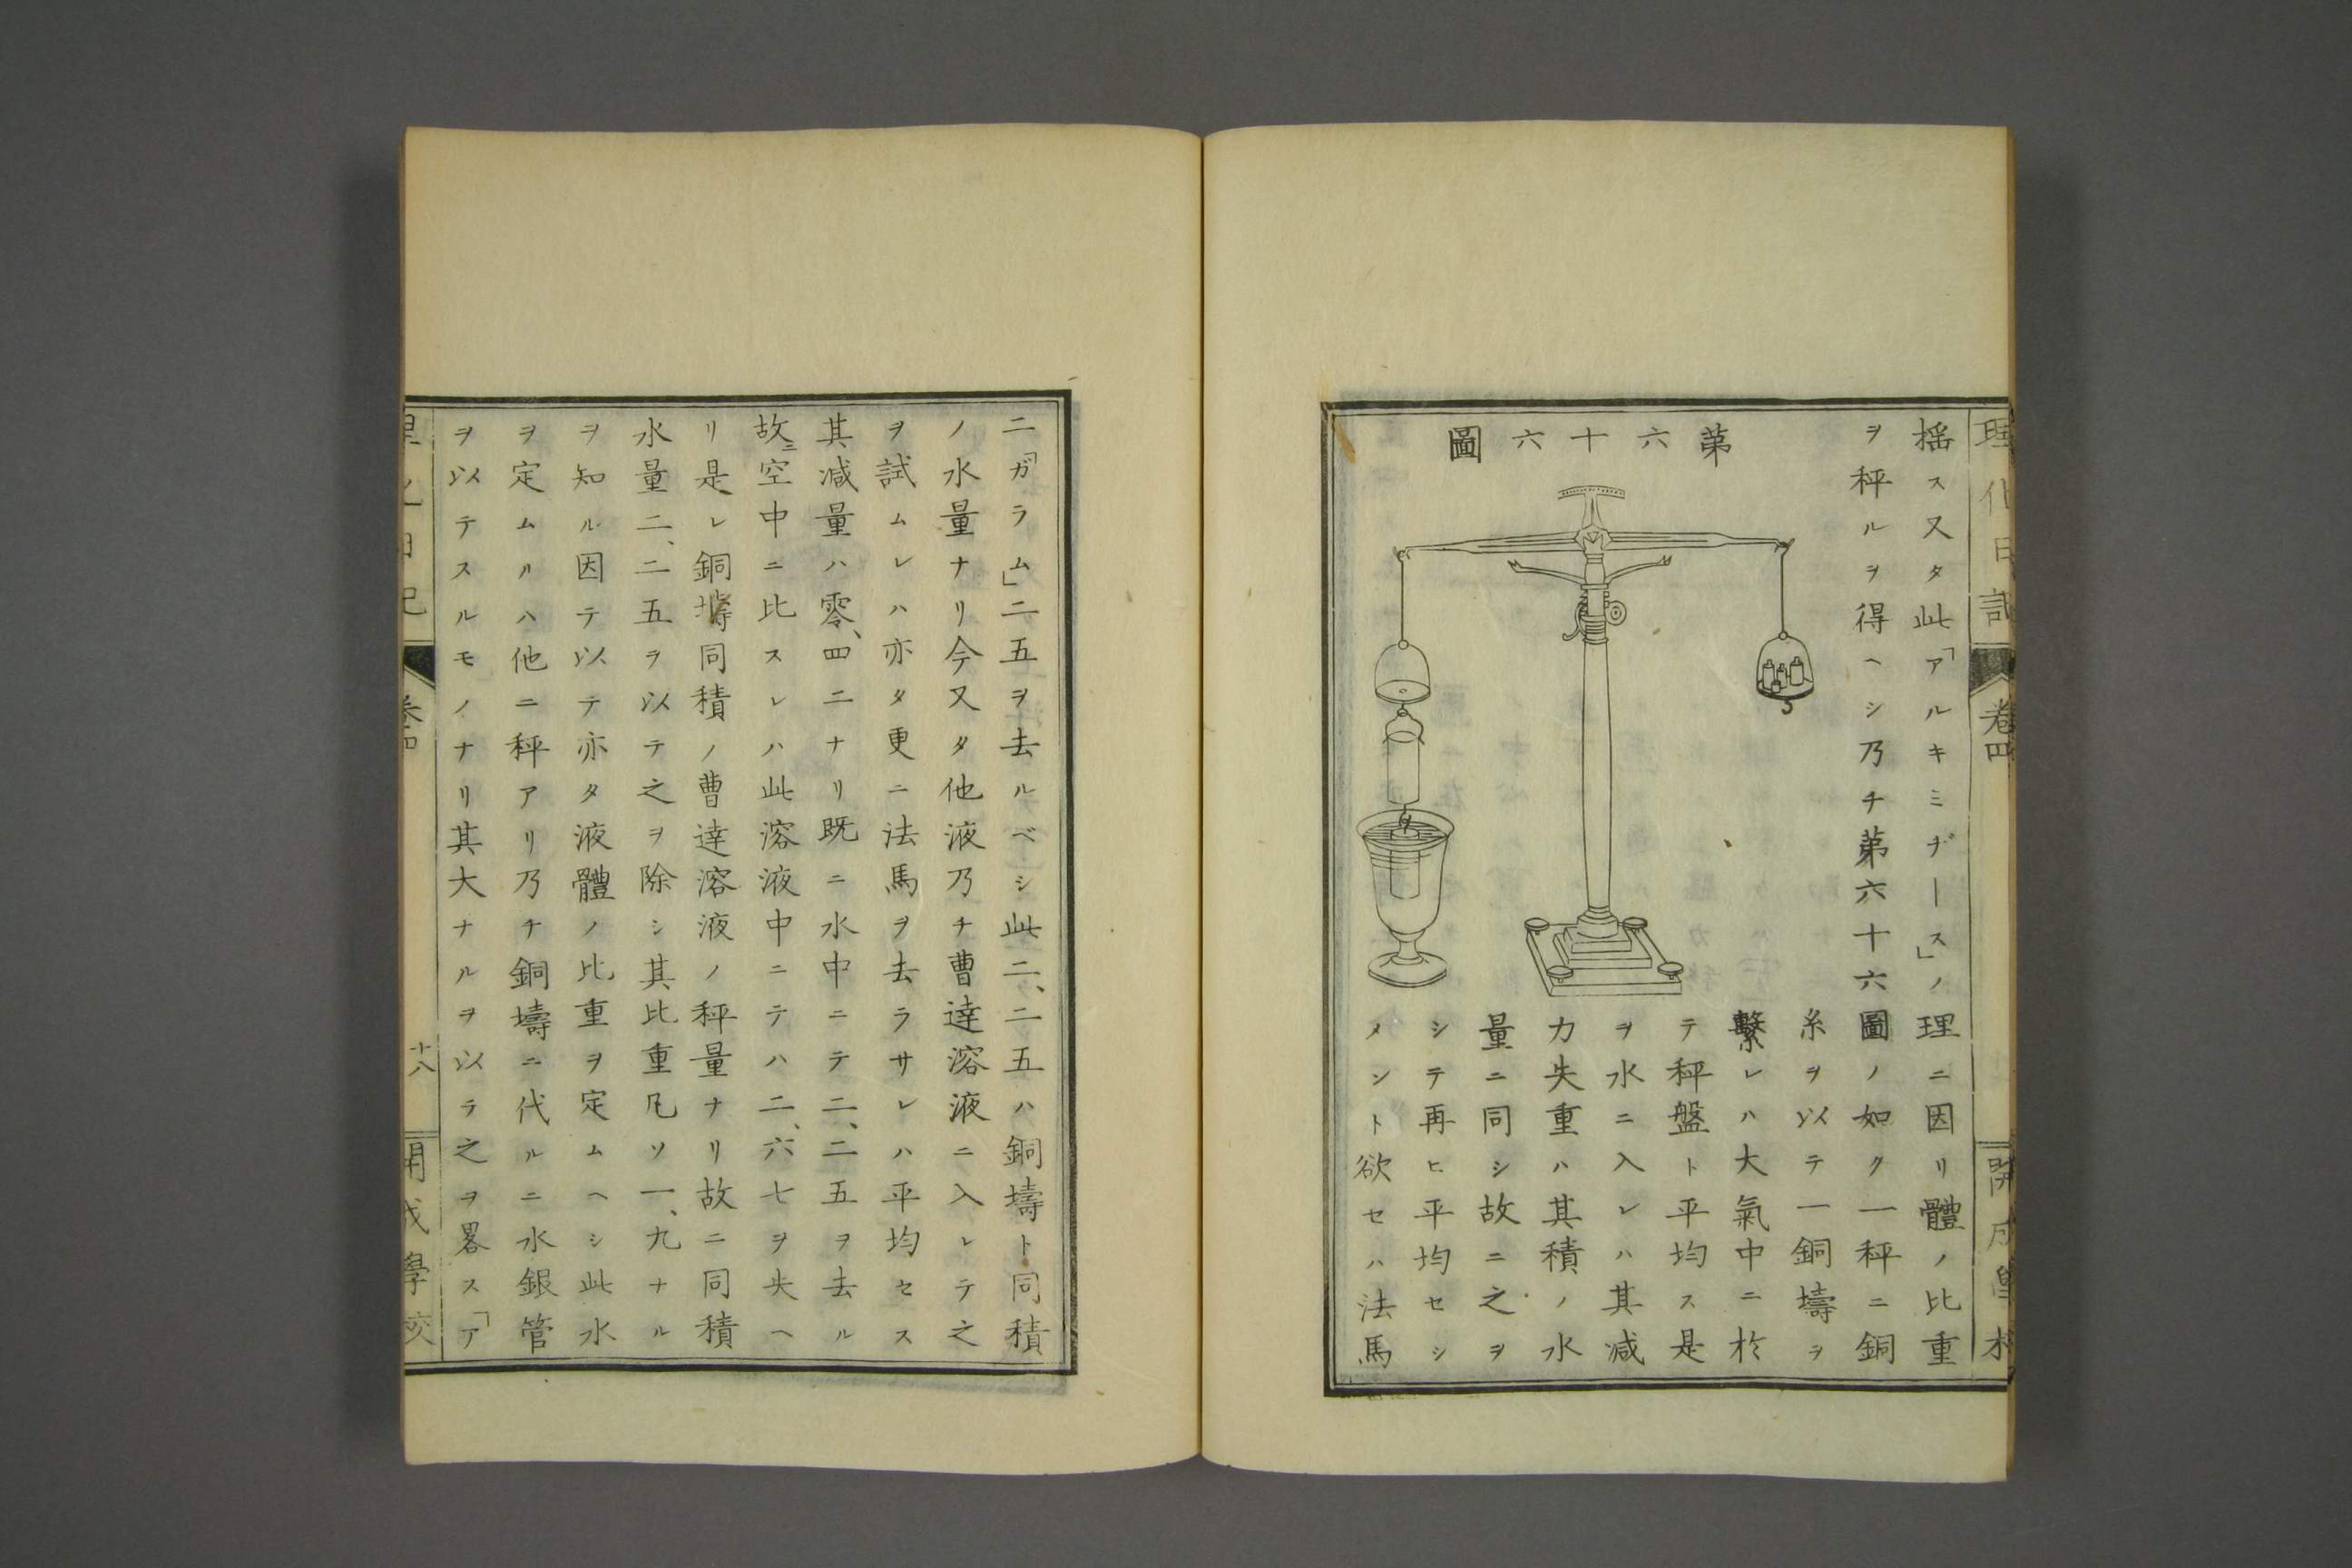 理化日記
卷四
開成學校
搖ス又タ此「アルキミヂース」ノ理ニ因リ體ノ比重
ヲ秤ルヲ得ヘシ乃チ第六十六圖ノ如ク一秤ニ銅
第六十六圖
糸ヲ以テ一銅壔ヲ
繫レハ大氣中ニ於
テ秤盤ト平均ス是
ヲ水ニ入レハ其減
力失重ハ其積ノ水
量ニ同シ故ニ之ヲ
シテ再ヒ平均セシ
メント欲セハ法馬
二「ガラム」二五ヲ去ルベシ此二、二五ハ銅壔ト同積
ノ水量ナリ今又タ他液乃チ曹達溶液ニ入レテ之
ヲ試ムレハ亦タ更ニ法馬ヲ去ラサレハ平均セス
其減量ハ零、四二ナリ既ニ水中ニテ二、二五ヲ去ル
故ニ空中ニ比スレハ此溶液中ニテハ二、六七ヲ失ヘ
リ是レ銅壔同積ノ曹達溶液ノ秤量ナリ故ニ同積
水量二、二五ヲ以テ之ヲ除シ其比重凡ソ一、九ナル
ヲ知ル因テ以テ亦タ液體ノ比重ヲ定ムヘシ此水
ヲ定ムルハ他ニ秤アリ乃チ銅壔ニ代ルニ水銀管
ヲ以テスルモノナリ其大ナルヲ以テ之ヲ畧ス「ア
理化日記
卷四
十八
開成學校